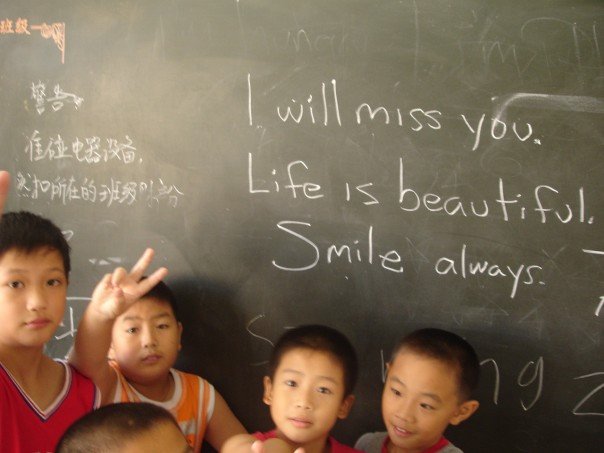 班级
警告
谁碰电器设备,
然扣所在的班级 分
I will miss you.
Life is beautiful.
Smile always.